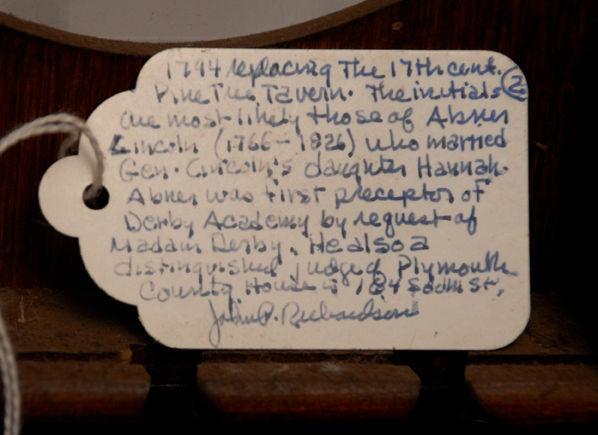 1794 replacing The 17th cent.
Pine Tree Tavern. The initials (2)
are most likely those of Abner
Lincoln (1766-1826) who married
Gen. Lincoln's daughter Hannah.
Abner was first preceptor of
Derby Academy by request of
Madam Derby. He also a
distinguished judge of Plymouth
County House is 184 South St,
John P. Richardson